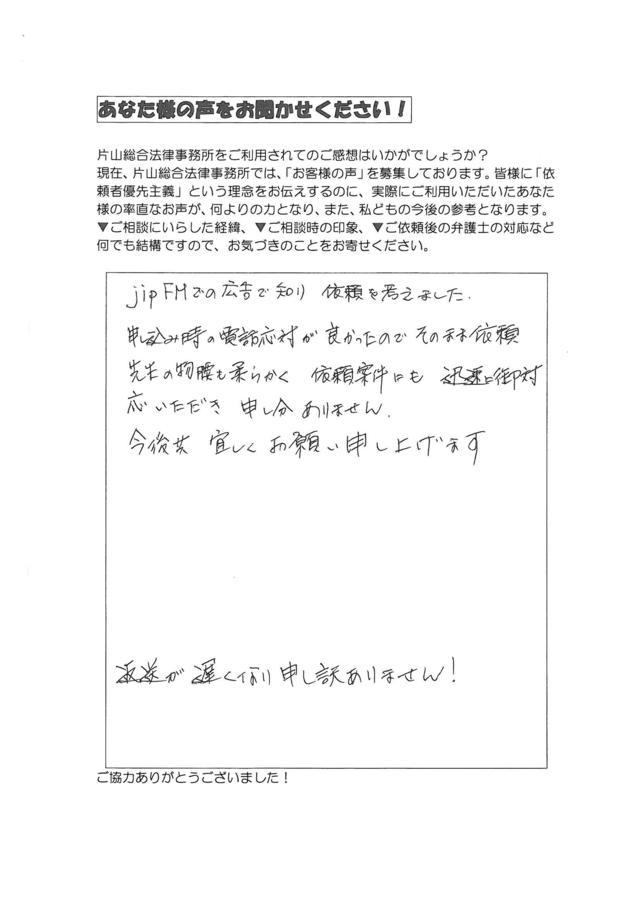 あなた様の声をお聞かせください！
片山総合法律事務所をご利用されてのご感想はいかがでしょうか？
現在、片山総合法律事務所では、「お客様の声」を募集しております。皆様に「依
頼者優先主義」という理念をお伝えするのに、実際にご利用いただいたあなた
様の率直なお声が、何よりの力となり、また、私どもの今後の参考となります。
▼ご相談にいらした経緯、▼ご相談時の印象、▼ご依頼後の弁護士の対応など
何でも結構ですので、お気づきのことをお寄せください。
jip FMでの広告で知り 依頼を考えました.
申し込み時の電話応対が良かったのでそのまま依頼
先生の物腰も柔らかく 依頼案件にも 迅速に御対
応いただき 申し分ありません.
今後共 宜しくお願い申し上げます
返送が遅くなり申し訳ありません！
ご協力ありがとうございました！